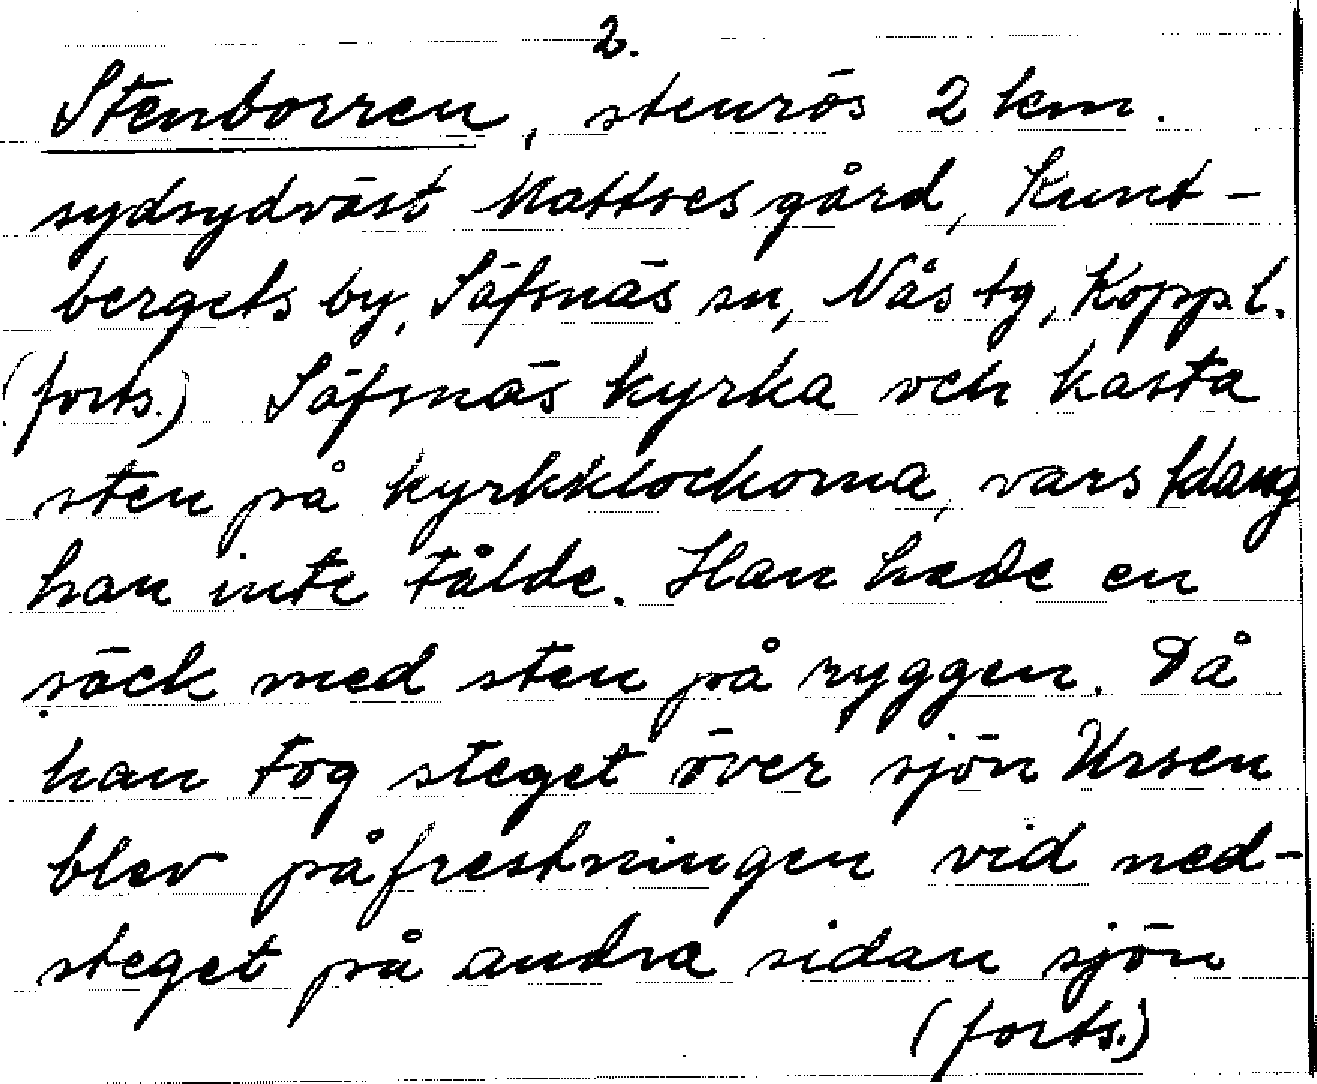 2.
Stenborren, stenrös 2 km.
sydsydväst Mattsesgård, Kunt-
bergets by, Säfsnäs sn, Nås tg, Kopp.l.
(forts.) Säfsnäs kyrka och kasta
sten på kyrkklockorna, vars klang
han inte tålde. Han hade en
säck med sten på ryggen. Då
han tog steget över sjön Ursen
blev påfrestningen vid ned-
steget på andra sidan sjön
(forts.)